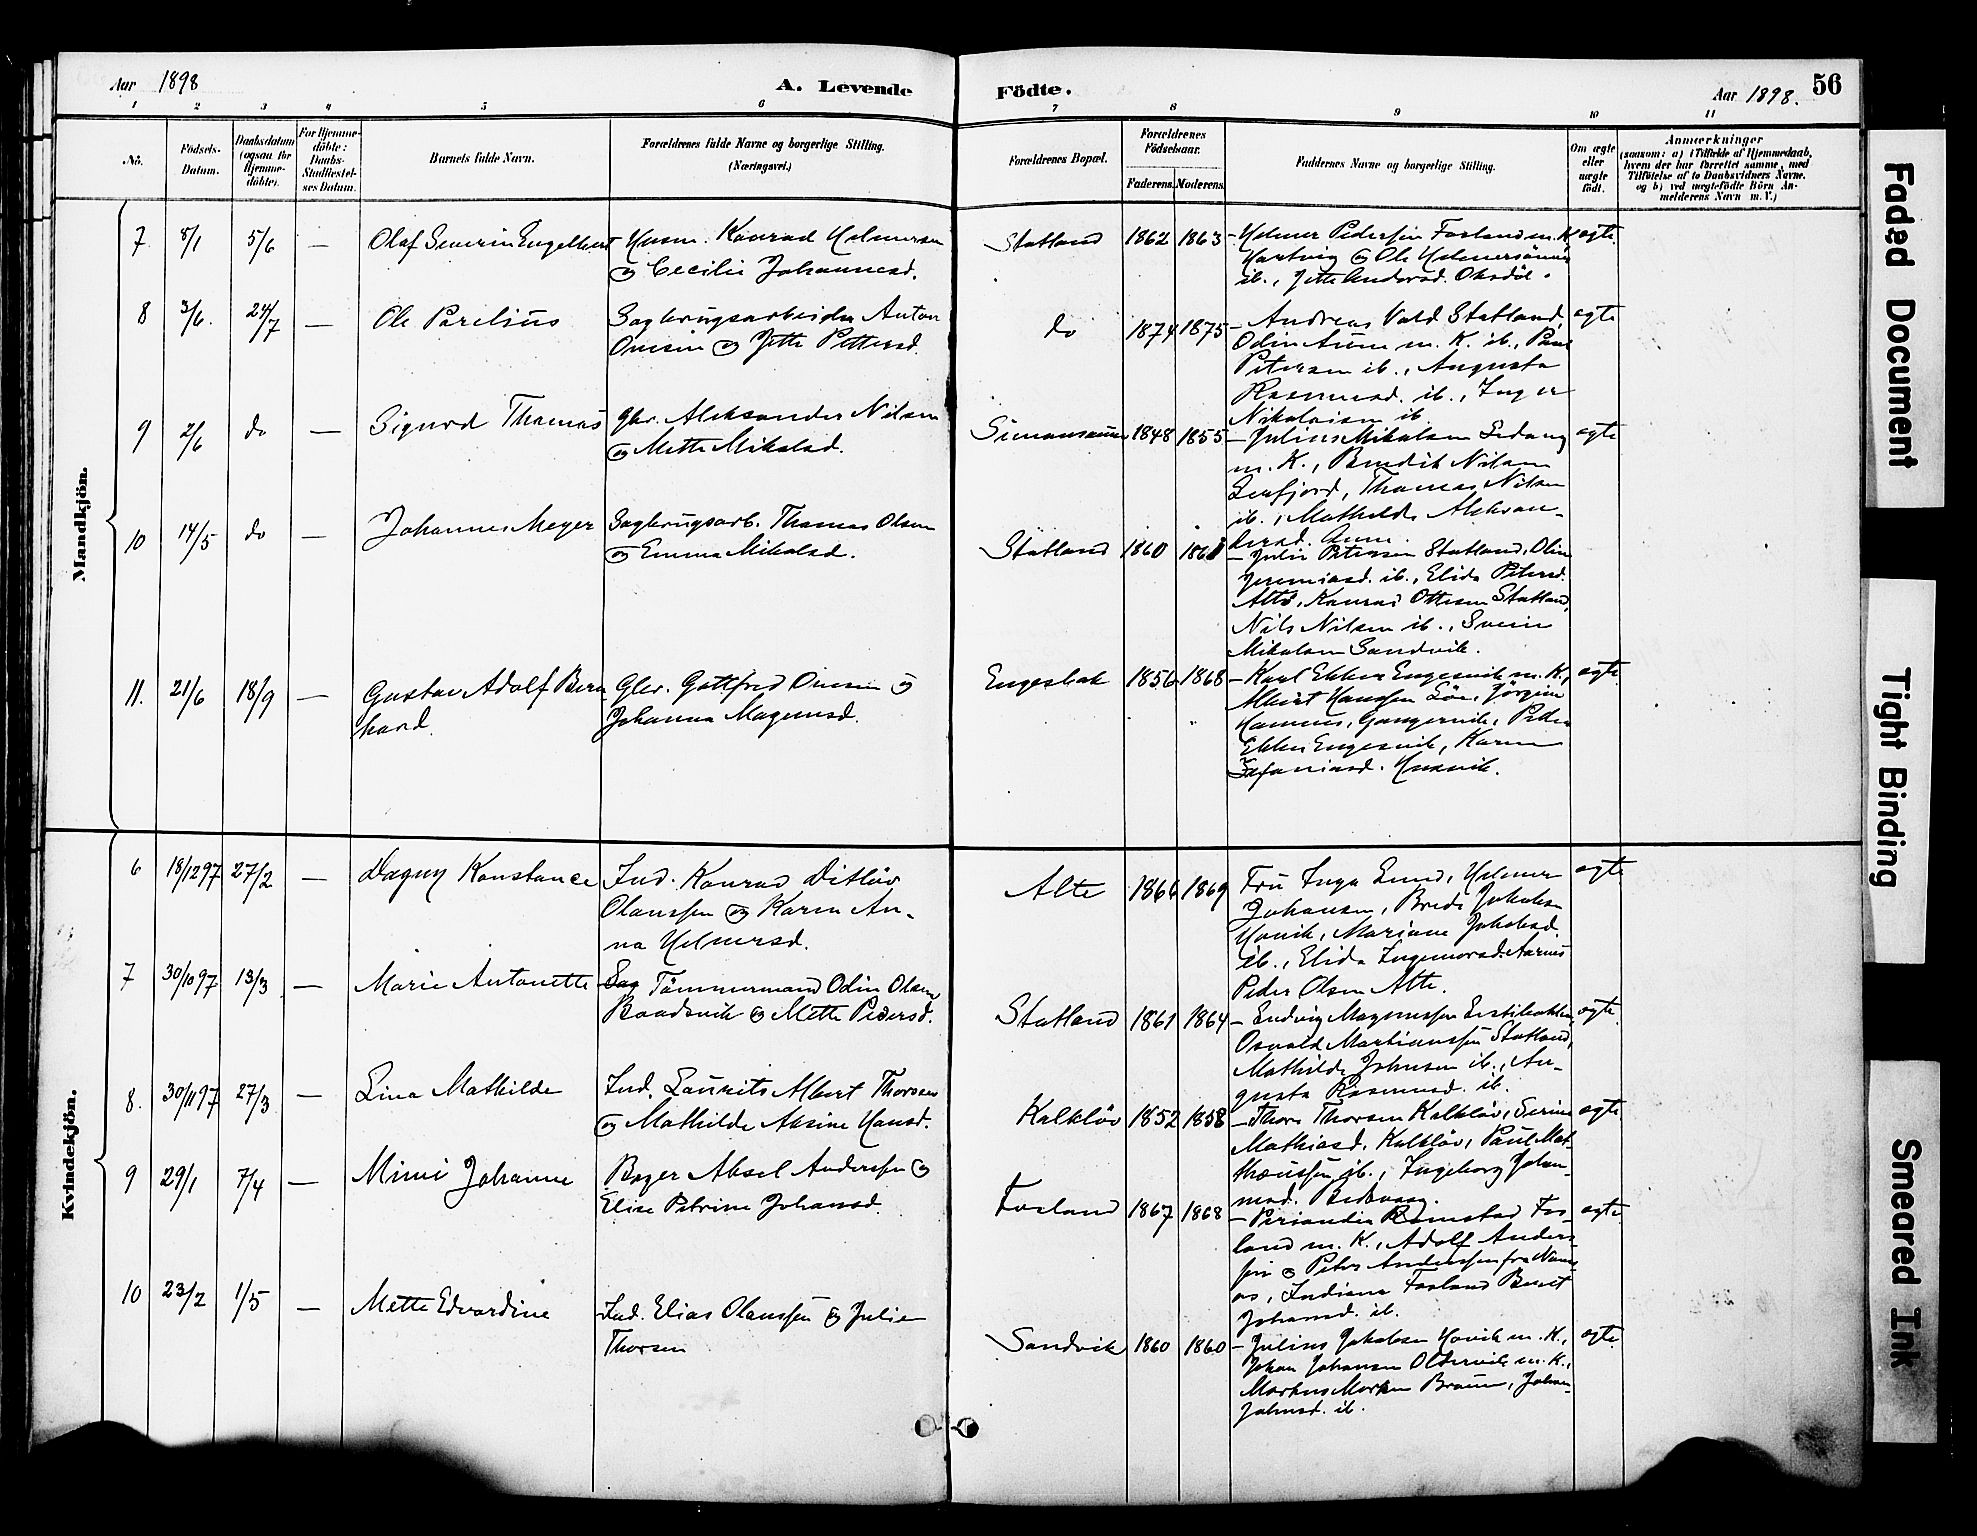 Aar 1898
A. Levende
Födte.
Aar 1898.
56
1 2 3 4 5 6 7 8 9 10 11
No.
Födsels-
Datum.
Daabsdatum
(ogsaa for
Hjemme-
döbte).
For Hjemme-
döbte:
Daabs-
Stadfæstel-
ses Datum.
Barnets fulde Navn.
Forældrenes fulde Navne og borgerlige Stilling.
(Næringsvei.)
Forældrenes Bopæl.
Forældrenes
Födselsaar.
Faderens.
Moderens.
Faddernes Navne og borgerlige Stilling.
Om ægte
eller
uægte
födt.
Anmærkninger
(saasom: a) i Tilfælde af Hjemmedaab,
hvem der har forrettet samme, med
Tilföielse af to Daabsvidners Navne.
og b) ved uægtefödte Börn An-
melderens Navn m. V.)
Mandkjön.
7. 8/1 5/6 — Olaf Severin Engelbert
Husm. Konrad Helmersen
og Cecilie Johannesd.
Statland 1862 1863
— Helmer Pedersen Fosland m. K.
Hartvig og Ole Helmersönner
ib., Jette Andersd. Oksdöl.
ægte
8 3/6. 24/7 — Ole Parelius
Sagbrugsarbeider Anton
Onesen og Jette Pettersd.
do 1874 1875
— Andreas Vold Statland,
Odin Aune m. K. ib., Paul
Petersen ib., Augusta
Rasmusd. ib., Inger
Nikolaisen ib
ægte
9 2/6 do — Sigurd Thomas
Gbr. Aleksander Nilsen
og Mette Mikalsd.
Simonsaune 1848 1855
— Julius Mikalsen Sedang
m. K., Bendik Nilsen
Serfjord, Thomas Nilsen
ib., Mathilde Aleksan-
dersd. Aune.
ægte
10 14/5 do — Johannes Meyer
Sagbrugsarb. Thomas Olsen
og Emma Mikalsd.
Statland 1860
— Julie Petersen Statland, Olin
Jeremiasd. ib., Elida Petersd.
Alte, Konrad Ottesen Statland,
Nils Nilsen ib., Svein
Mikalsen Sandvik.
11. 21/6 18/9 — Gustav Adolf Bern
hard.
Gbr. Gottfred Onesen og
Johanna Magnusd.
Engesbak 1856 1868
— Karl Ekker Engesvik m. K.,
Albert Hanssen Lön, Jörgen
Hannus, Gangervik, Peder
Ekker Engesvik, Karen
Sefaniasd. Husvik.
ægte
Kvindekjön.
6 18/12 97 27/2 — Dagny Konstance
Ind. Konrad Ditlöv
Olaussen og Karen An-
na Helmersd.
Alte 1866 1869
Fru Inga Lund, Helmer
Johansen, Brede Jakobsen
Hovik, Mariane Jakobsd.
ib., Elida Ingemorsd. Aarnes
Peder Olsen Alte.
ægte
7 30/10 97 13/3 — Marie Antonette
Sag Tömmermand Odin Olsen
Baadsvik og Mette Pedersd.
Statland 1861 1864
— Ludvig Magnussen
Osvald Martinussen Statland,
Mathilde Johnsen ib., Au-
gusta Rasmusd. ib.
ægte
8. 30/11 97 27/3 — Lina Mathilde
Ind. Laurits Albert Thorsen
og Mathilde Aksine Hansd.
Kalklöv 1852 1858
— Thore Thorsen Kalklöv, Serine
Mathiasd. Kalklöv, Paul Mat-
thæussen ib., Ingeborg Johan-
nesd.
ægte
9 29/1 7/4 — Mimi Johanne
Bager Aksel Anderssen og
Elise Petrine Johansd.
Fosland 1867 1868
— Periander Ramstad Fos-
land m. K., Adolf Anders-
sen og Peter Anderssen fra Nams-
os, Indiana Fosland Beret
Johansd. ib.
ægte
10 23/2 1/5 — Mette Edvardine
Ind. Elias Olaussen og Julie
Thorsen
Sandvik 1860 1860
— Julius Jakobsen Hovik m. K.,
Johan Johansen Oldervik m. K.,
Markus Morken Braun, Johan
Johnsd. ib.
ægte
Faded Document
Tight Binding
Smeared Ink